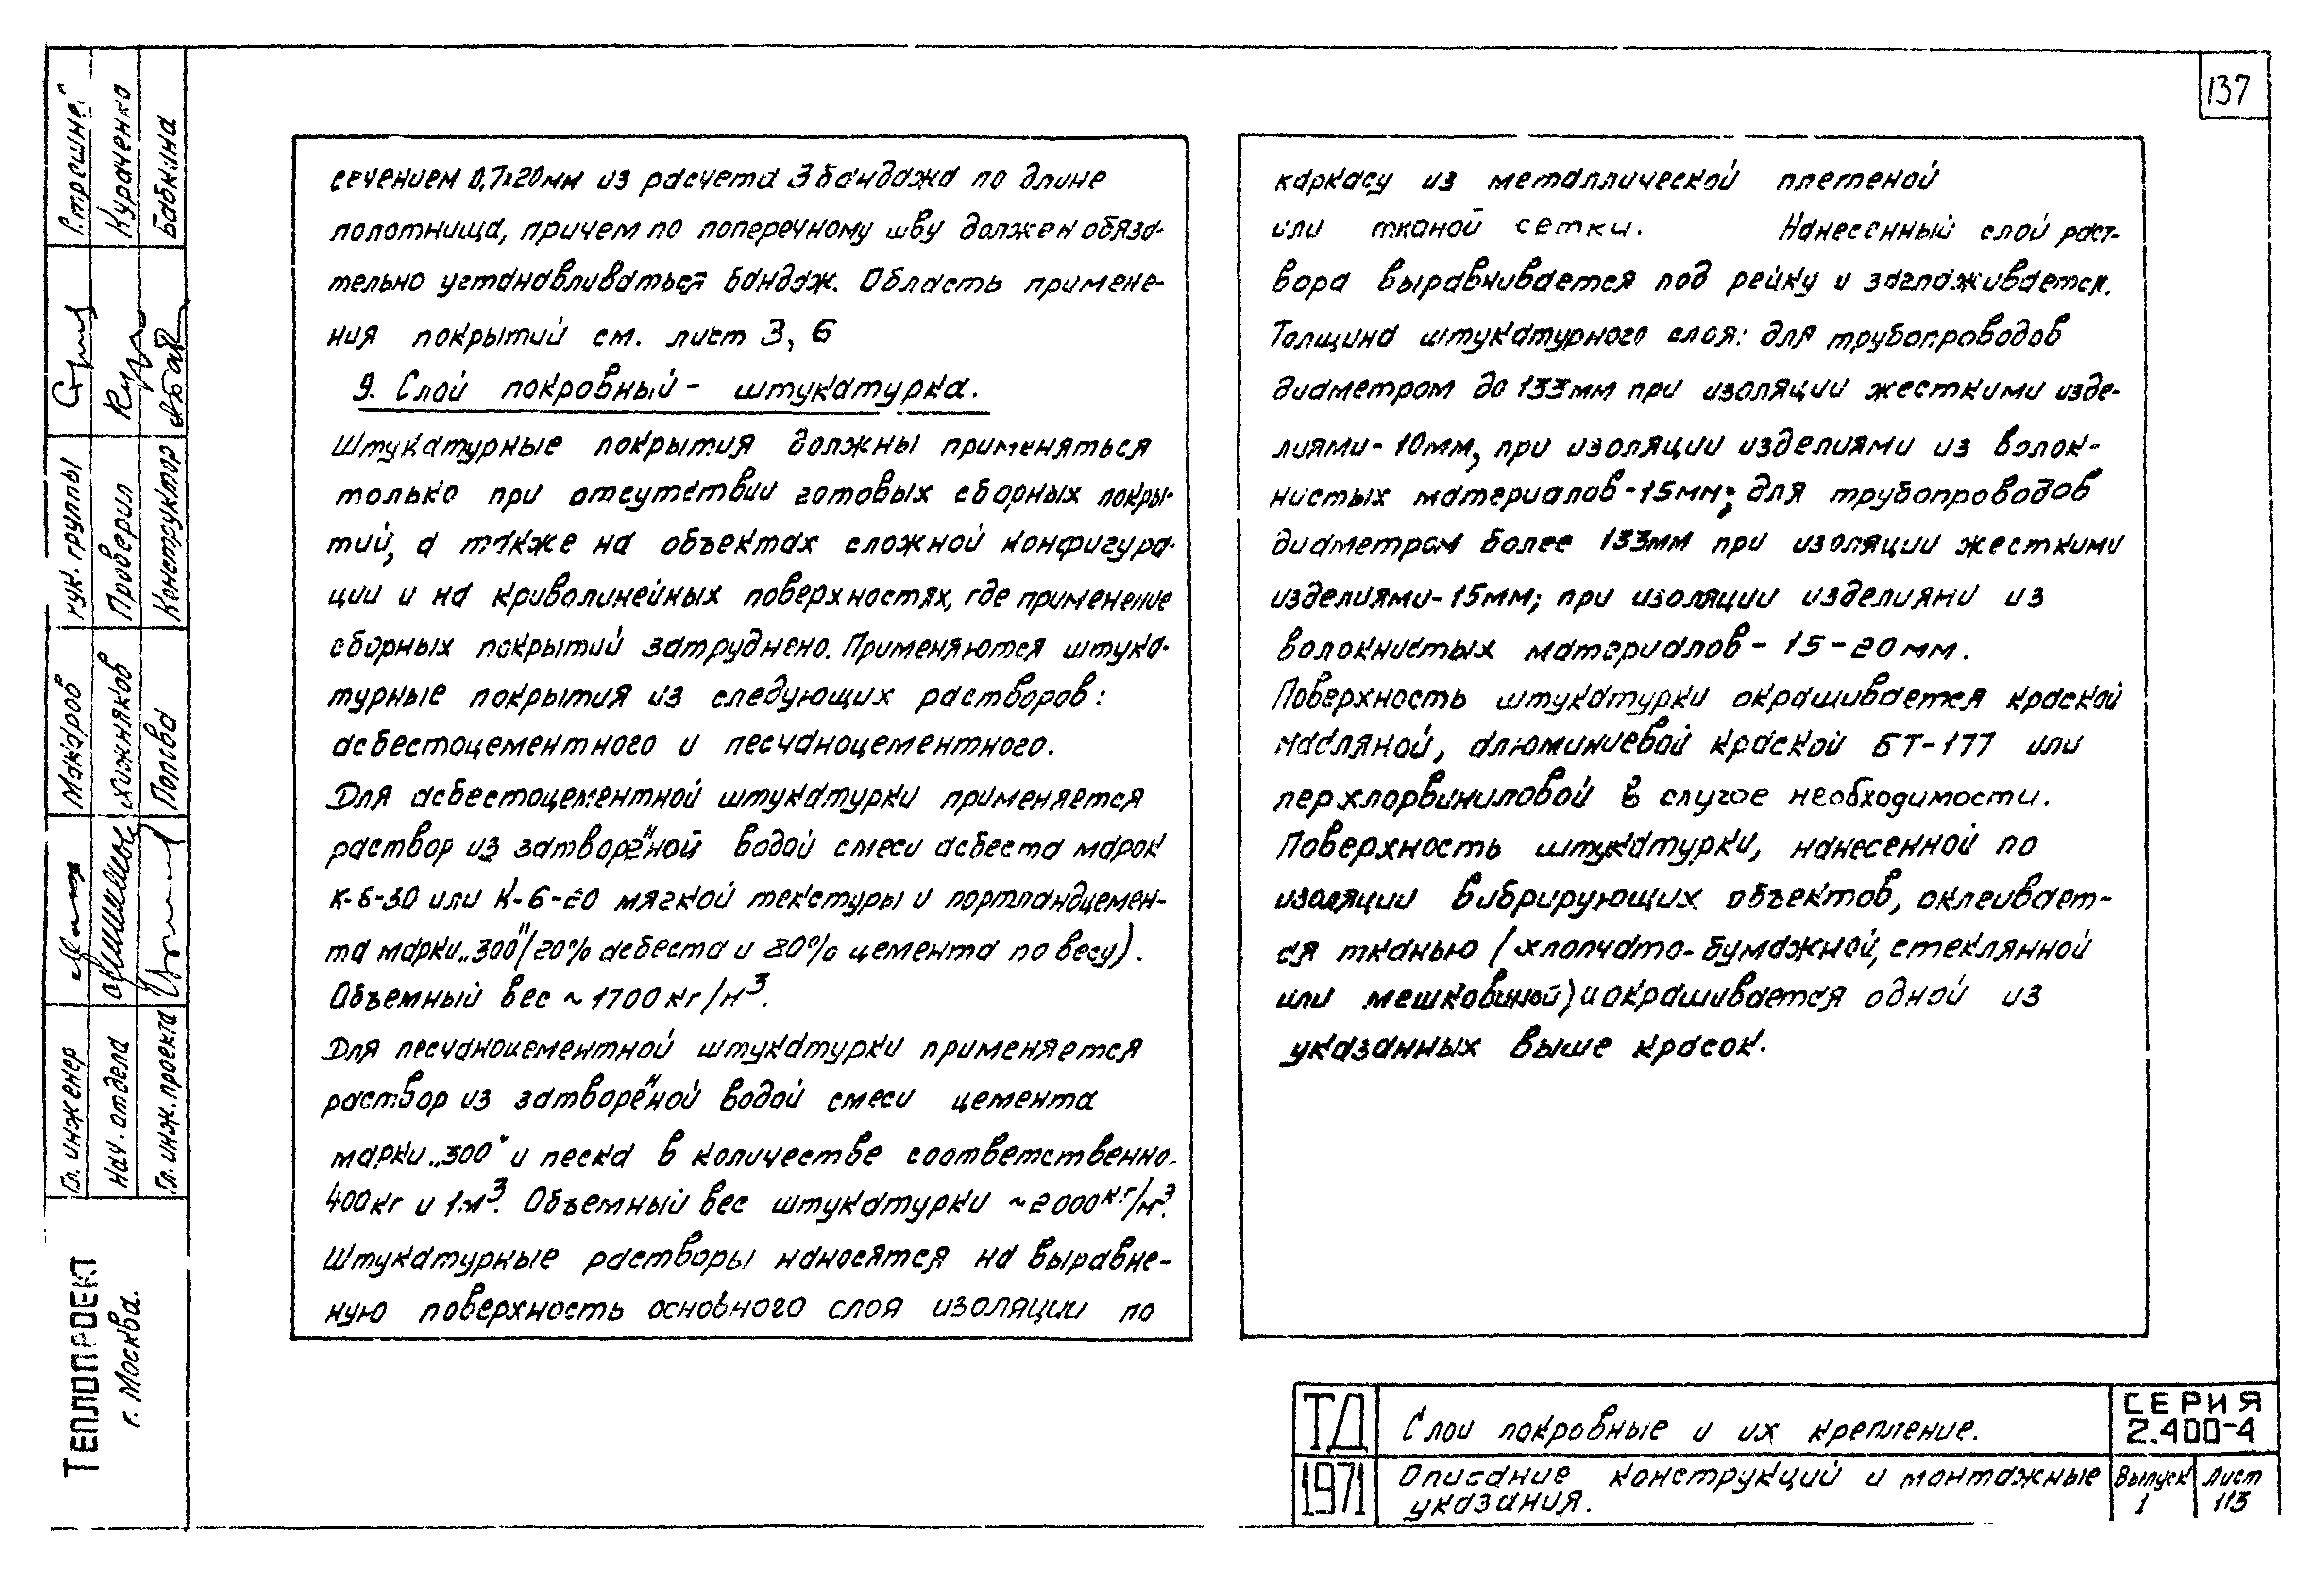 137
сечением 0,7х20мм из расчета 3 бандажа по длине
полотнища, причем по поперечному шву должен обяза-
тельно устанавливаться бандаж. Область примене-
ния покрытий см. лист 3, 6
9. Слой покровный - штукатурка.
Штукатурные покрытия должны применяться
только при отсутствии готовых сборных покры-
тий, а также на объектах сложной конфигура-
ции и на криволинейных поверхностях, где применение
сборных покрытий затруднено. Применяются штука-
турные покрытия из следующих растворов:
асбестоцементного и песчаноцементного.
Для асбестоцементной штукатурки применяется
раствор из затворённой водой смеси асбеста марок
К-6-30 или К-6-20 мягкой текстуры и портландцемен-
та марки „300" (20% асбеста и 80% цемента по весу).
Объемный вес ~ 1700 кг/м³.
Для песчаноцементной штукатурки применяется
раствор из затворённой водой смеси цемента
марки „300" и песка в количестве соответственно
400кг и 1м³. Объемный вес штукатурки ~2000кг/м³.
Штукатурные растворы наносятся на выравне-
ную поверхность основного слоя изоляции по
каркасу из металлической плетеной
или тканой сетки. Нанесенный слой раст-
вора выравнивается под рейку и заглаживается.
Толщина штукатурного слоя: для трубопроводов
диаметром до 133мм при изоляции жесткими изде-
лиями - 10мм, при изоляции изделиями из волок-
нистых материалов - 15мм; для трубопроводов
диаметром более 133мм при изоляции жесткими
изделиями - 15мм; при изоляции изделиями из
волокнистых материалов - 15-20мм.
Поверхность штукатурки окрашивается краской
масляной, алюминиевой краской БТ-177 или
перхлорвиниловой в случае необходимости.
Поверхность штукатурки, нанесенной по
изоляции вибрирующих объектов, оклеивает-
ся тканью (хлопчато-бумажной, стеклянной
или мешковиной) и окрашивается одной из
указанных выше красок.
ТД
1971
Слои покровные и их крепление.
Описание конструкций и монтажные
указания.
СЕРИЯ
2.400-4
Выпуск
1
Лист
113
Теплопроект
г. Москва.
Гл. инженер
Макаров
Рук. группы
Нач. отдела
Хижняков
Проверил
Кураченко
Гл. инж. проекта
Попова
Конструктор
Бабкина